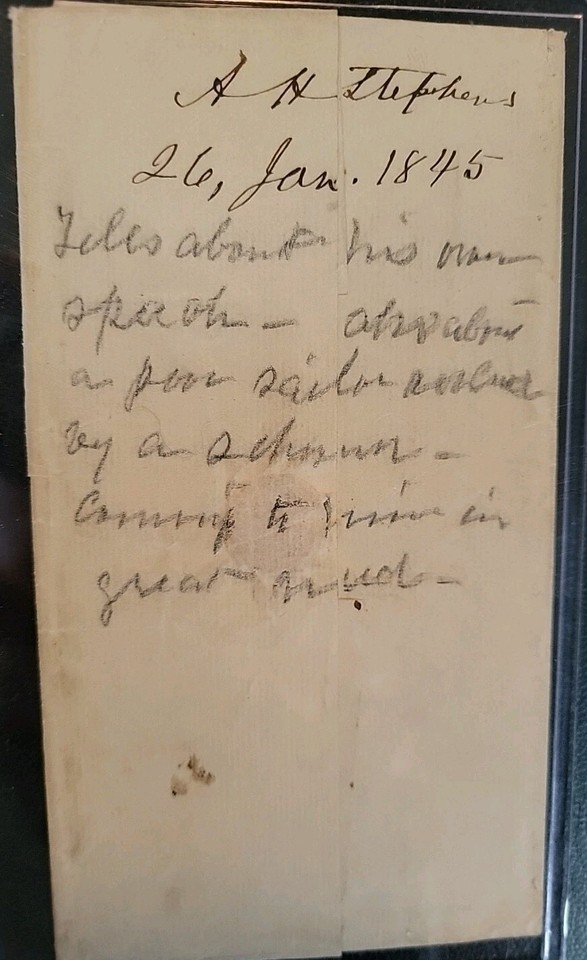 A H Stephens
26, Jan. 1845
Tells about his own
speech - also about
a poor sailor
by a -
Coming to him in
great need -